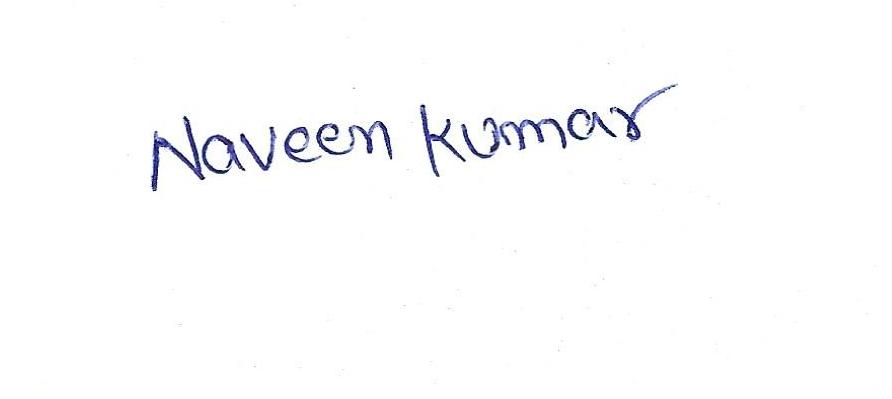 Naveen Kumar